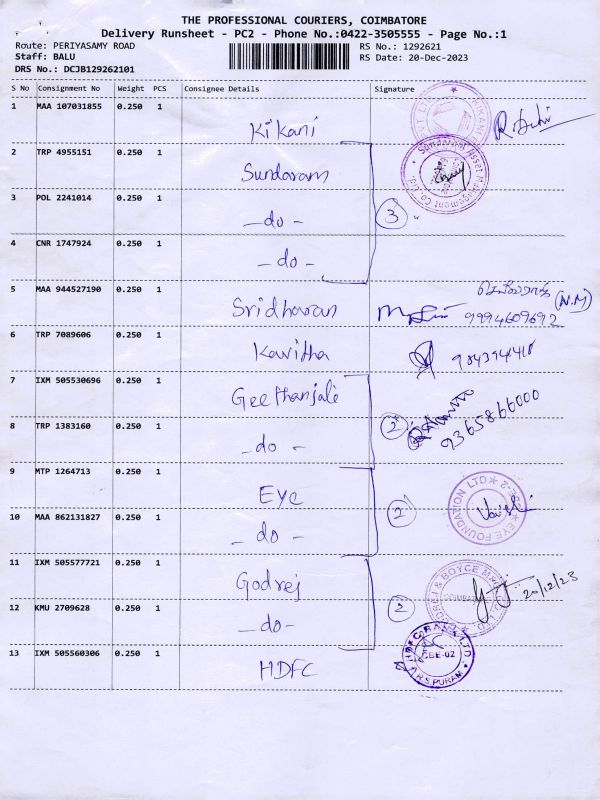 THE PROFESSIONAL COURIERS, COIMBATORE
Delivery Runsheet - PC2 - Phone No.:0422-3505555 - Page No.:1
Route: PERIYASAMY ROAD
RS No.: 1292621
Staff: BALU
RS Date: 20-Dec-2023
DRS No.: DCJB129262101
S No Consignment No Weight PCS Consignee Details Signature
1 MAA 107031855 0.250 1
Kikani
2 TRP 4955151 0.250 1
Sundaram
Sundaram Asset Management Co. Ltd.
3 POL 2241014 0.250 1
- do -
3
4 CNR 1747924 0.250 1
- do -
5 MAA 944527190 0.250 1
Sridharan
(N.M)
9994609692
6 TRP 7089606 0.250 1
Kavitha
7 IXM 505530696 0.250 1
Geethanjali
8 TRP 1383160 0.250 1
- do -
2
9365866000
9 MTP 1264713 0.250 1
Eye
EYE FOUNDATION LTD
10 MAA 862131827 0.250 1
- do -
2
11 IXM 505577721 0.250 1
Godrej
20/12/23
12 KMU 2709628 0.250 1
- do -
2
13 IXM 505560306 0.250 1
HDFC
HDFC BANK LTD.
CBE-02
R.S.PURAM